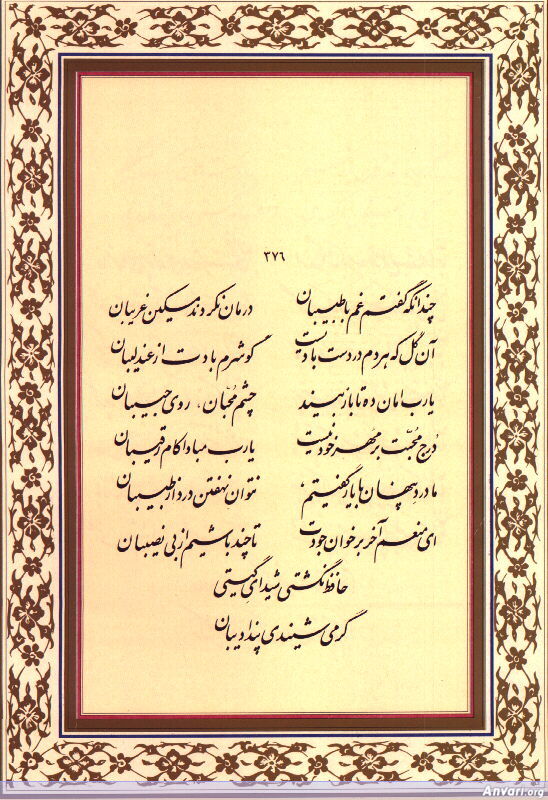 ۳۷۶
چندانکه گفتم غم با طبیبان درمان نکردند مسکین غریبان
آن گل که هر دم در دست بادیست گو شرم بادت از عندلیبان
یارب امان ده تا باز بیند چشم محبّان، روی حبیبان
دُرج محبّت بر مُهر خود نیست یارب مبادا کام رقیبان
ما درد پنهان با یار گفتیم، نتوان نهفتن درد از طبیبان
ای منعم آخر بر خوان جودت تا چند باشیم از بی نصیبان
حافظ نگشتی شیدای گیتی
گر می شنیدی پند ادیبان
Anvari.org